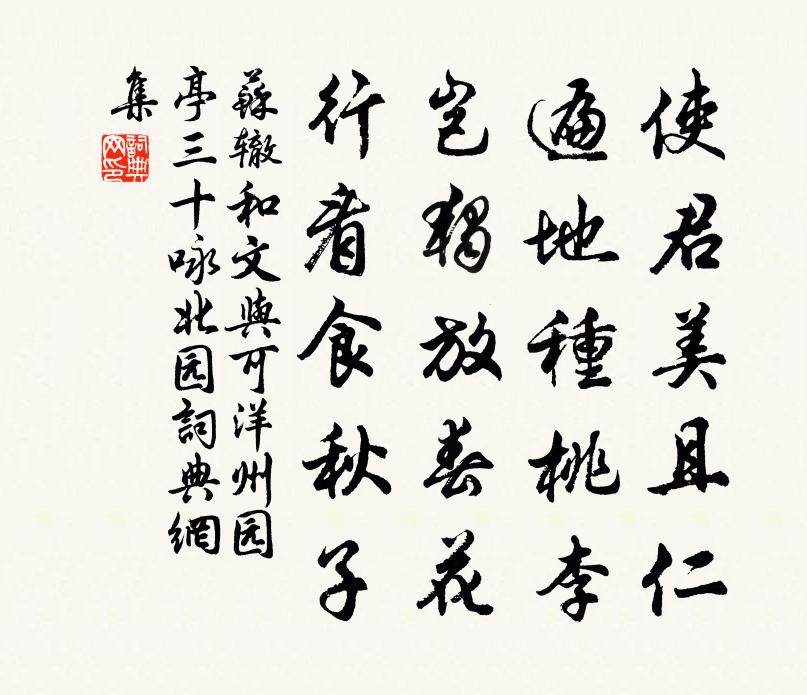 使君美且仁
遍地種桃李
豈獨放春花
行看食秋子
蘇辙和文與可洋州园
亭三十咏北园詞典網
集
詞典
网印